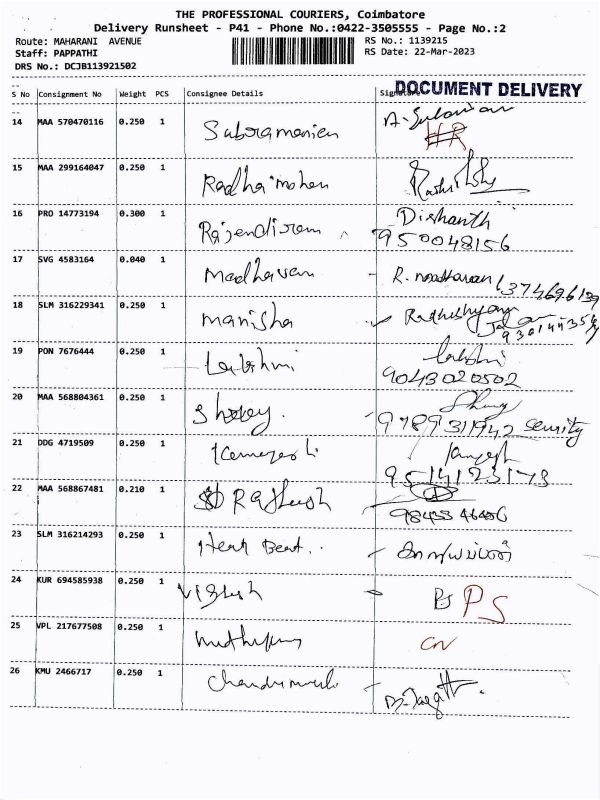 THE PROFESSIONAL COURIERS, Coimbatore
Delivery Runsheet - P41 - Phone No.:0422-3505555 - Page No.:2
Route: MAHARANI AVENUE RS No.: 1139215
Staff: PAPPATHI RS Date: 22-Mar-2023
DRS No.: DCJB113921502
DOCUMENT DELIVERY
S No Consignment No Weight PCS Consignee Details Signature
14 MAA 570470116 0.250 1 Subramanien
15 MAA 299164047 0.250 1 Radha mohan
16 PRO 14773194 0.300 1 Rajendiram Dishanth
950048156
17 SVG 4583164 0.040 1 madhavan R. madhavan
18 SLM 316229341 0.250 1 manisha Radheshyam
19 PON 7676444 0.250 1 Lakshmi
9043020502
20 MAA 568804361 0.250 1
9789311942 security
21 DDG 4719509 0.250 1
9514123173
22 MAA 568867481 0.210 1 Rajhesh
23 SLM 316214293 0.250 1 Heart Beat..
24 KUR 694585938 0.250 1 Vignesh PS
25 VPL 217677508 0.250 1 CN
26 KMU 2466717 0.250 1